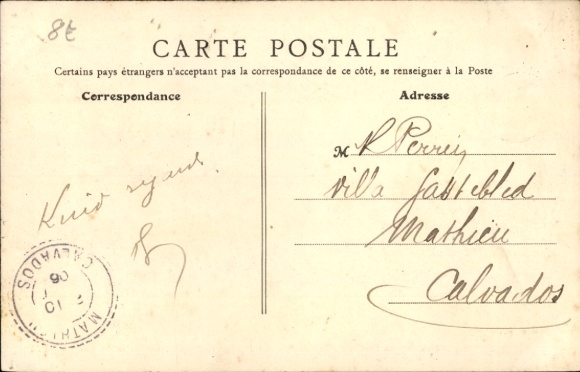 8t
CARTE POSTALE
Certains pays étrangers n'acceptant pas la correspondance de ce côté, se renseigner à la Poste
Correspondance
Adresse
M
Villa
Mathieu
Calvados
Kind regards.
MATHIEU
CALVADOS
10
06